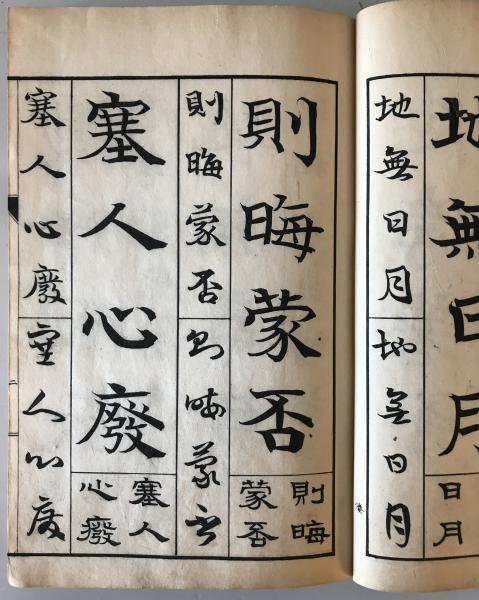 地無日月
日月
地無日月
地無日月
則晦蒙否
則晦
蒙否
則晦蒙否
則晦蒙否
塞人心廢
塞人
心癈
塞人心廢
塞人心廢